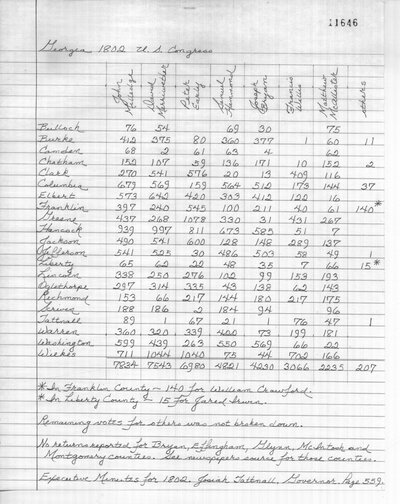 11646
Georgia 1802 U. S. Congress
John Milledge David Meriwether Peter Early Samuel Hammond Joseph Bryan Francis Willis Matthew McAllister others
Bulloch 76 54 69 30 75
Burke 412 375 80 360 377 1 60 11
Camden 68 2 61 63 4 62
Chatham 152 107 59 136 171 10 152 2
Clark 270 541 576 20 13 409 116
Columbia 679 569 159 564 512 173 144 37
Elbert 573 642 420 303 412 122 16
Franklin 397 240 545 100 211 40 61 140*
Greene 437 268 1078 330 31 431 267
Hancock 939 997 811 673 585 51 7
Jackson 490 541 600 128 148 289 137
Jefferson 541 525 30 486 503 58 49 1
Liberty 65 62 22 48 35 7 66 15*
Lincoln 338 250 276 102 99 153 193
Oglethorpe 297 314 335 43 138 62 143
Richmond 153 66 217 144 180 217 175
Screven 188 186 2 184 94 96
Tattnall 89 1 67 21 1 76 47 1
Warren 360 320 339 400 73 199 181
Washington 599 439 263 550 569 66 22
Wilkes 711 1044 1040 75 44 702 166
7834 7543 6980 4821 4230 3066 2235 207
* In Franklin County - 140 for William Crawford.
* In Liberty County - 15 for Jared Irwin.
Remaining votes for others was not broken down.
No returns reported for Bryan, Effingham, Glynn, McIntosh and
Montgomery counties. See newspapers source for those counties.
Executive Minutes for 1802. Josiah Tattnall, Governor. Page 559.